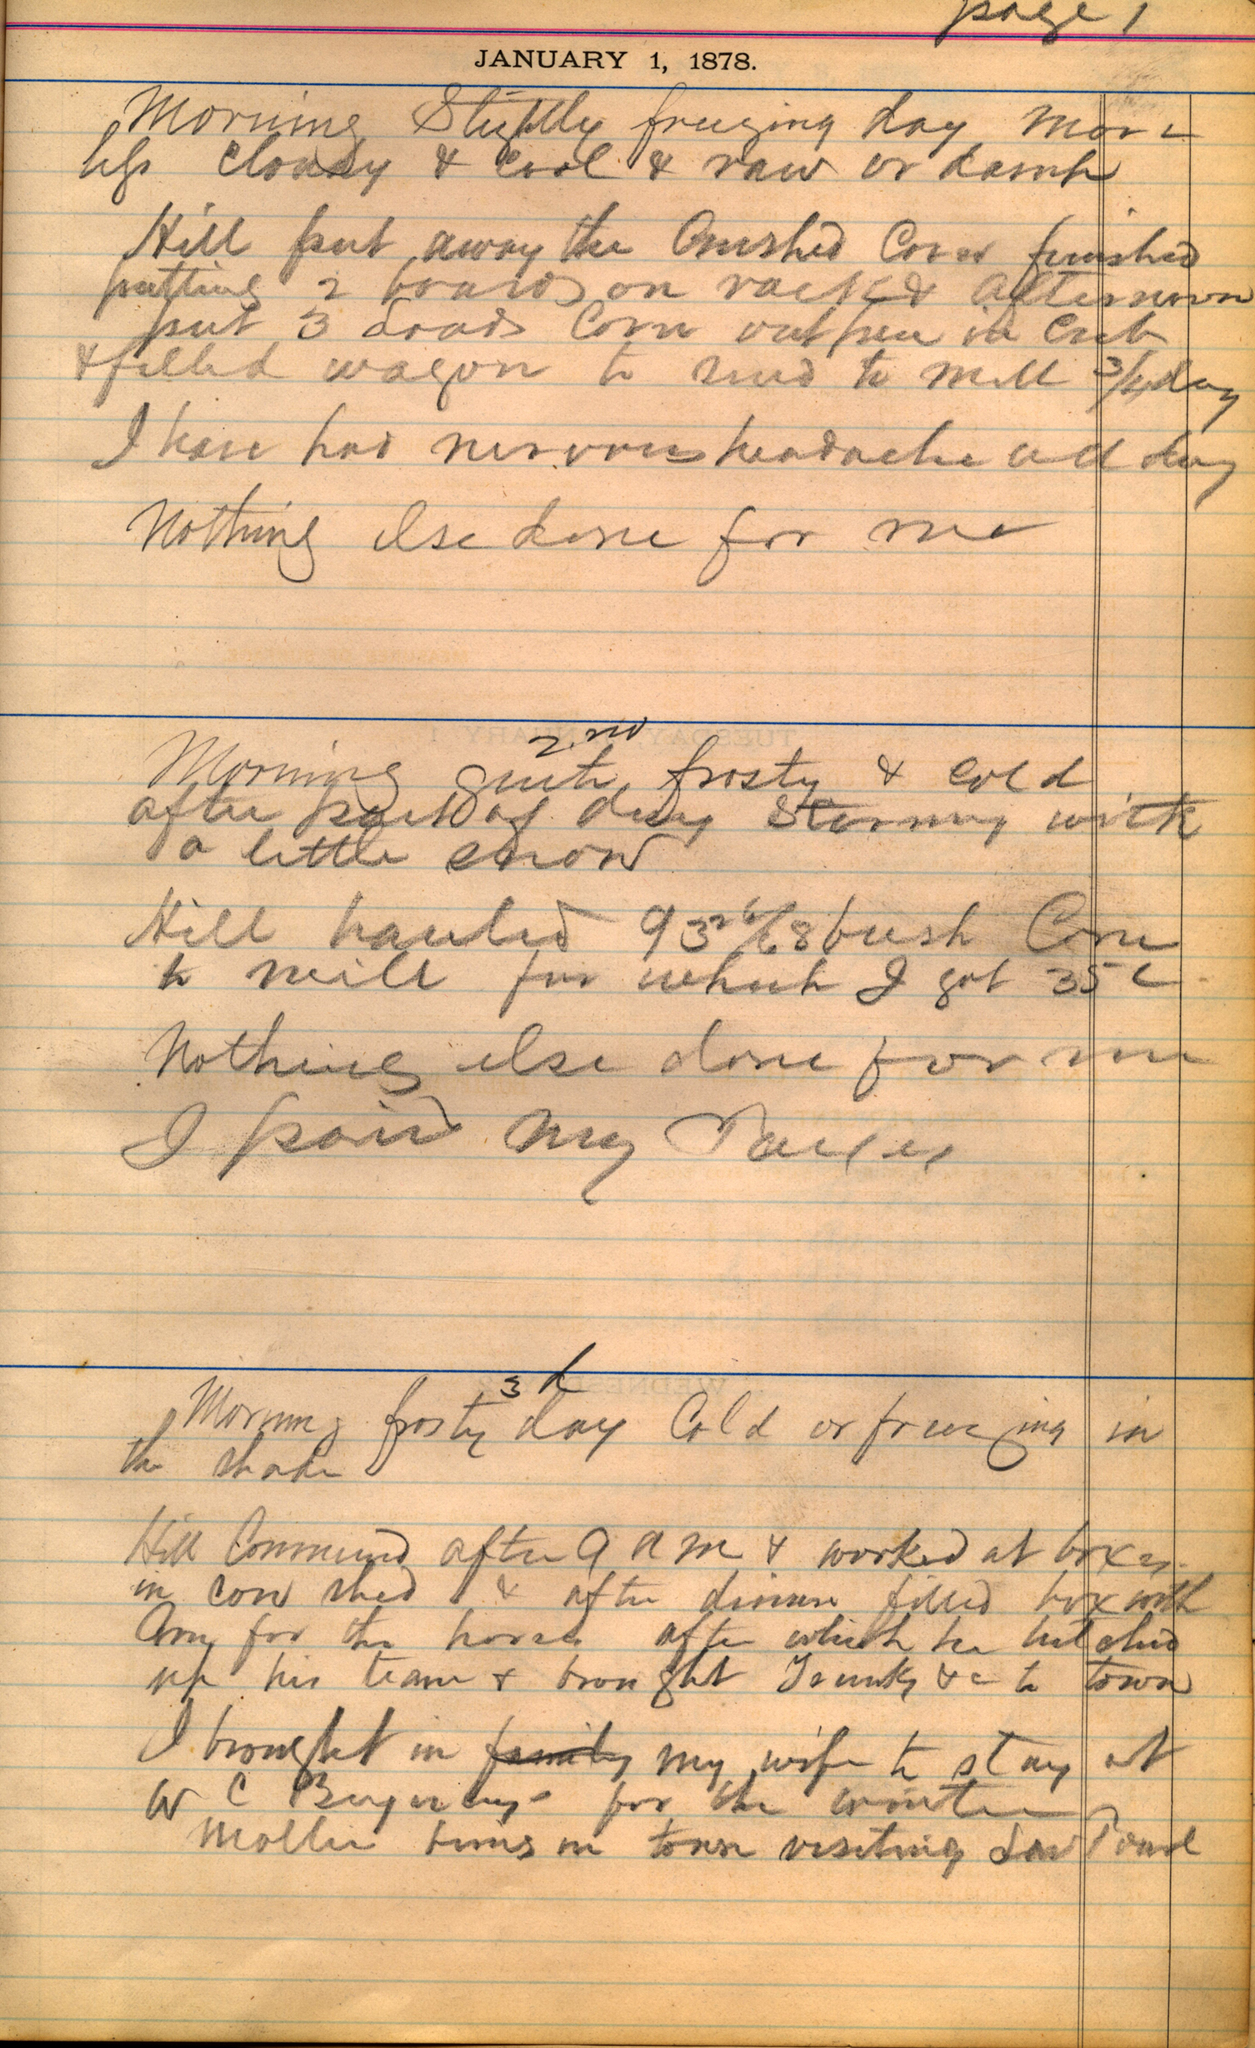 page 1
JANUARY 1, 1878.
Morning Slightly freezing day more
less cloudy & cool & raw or damp
Hill put away the Crushed Corn finished
putting 2 boards on rack & afternoon
put 3 Loads Corn in Crib
& filled wagon to send to mill 3/4 day
I have had nervous headache all day
Nothing else done for me
2nd
Morning quite frosty & cold
after part of day Stormy with
a little snow
Hill hauled 93 26/68 bush Corn
to mill for which I got 35 c
Nothing else done for me
I paid my Taxes
3d
Morning frosty day Cold or freezing in
the shade
Hill Commenced after 9 a m & worked at boxes
in cow shed & after dinner filled box with
for the horses after which he hitched
up his team & brought Trunks &c to town
I brought in family my wife to stay at
W C for the winter
Mollie in town visiting